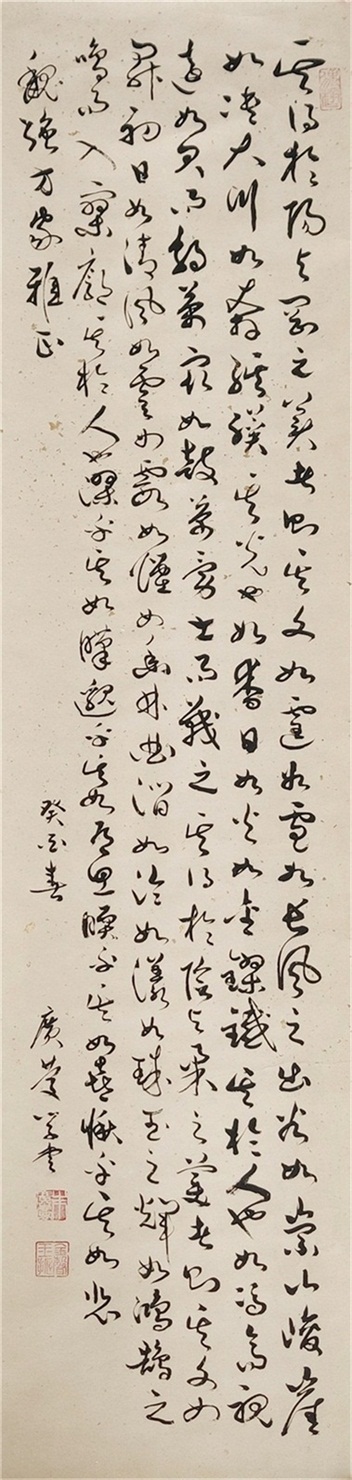 其得於陽與剛之美者則其文如霆如電如長風之出谷如崇山峻崖
如決大川如奔騏驥其光也如杲日如火如金鏐鐵其於人也如馮高視
遠如君而朝萬眾如鼓萬勇士而戰之其得於陰與柔之美者則其文如
昇初日如清風如雲如霞如煙如幽林曲澗如淪如漾如珠玉之輝如鴻鵠之
鳴而入寥廓其於人也漻乎其如歎邈乎其如有思暖乎其如喜愀乎其如悲
魏強方家雅正
癸酉春
廣慶